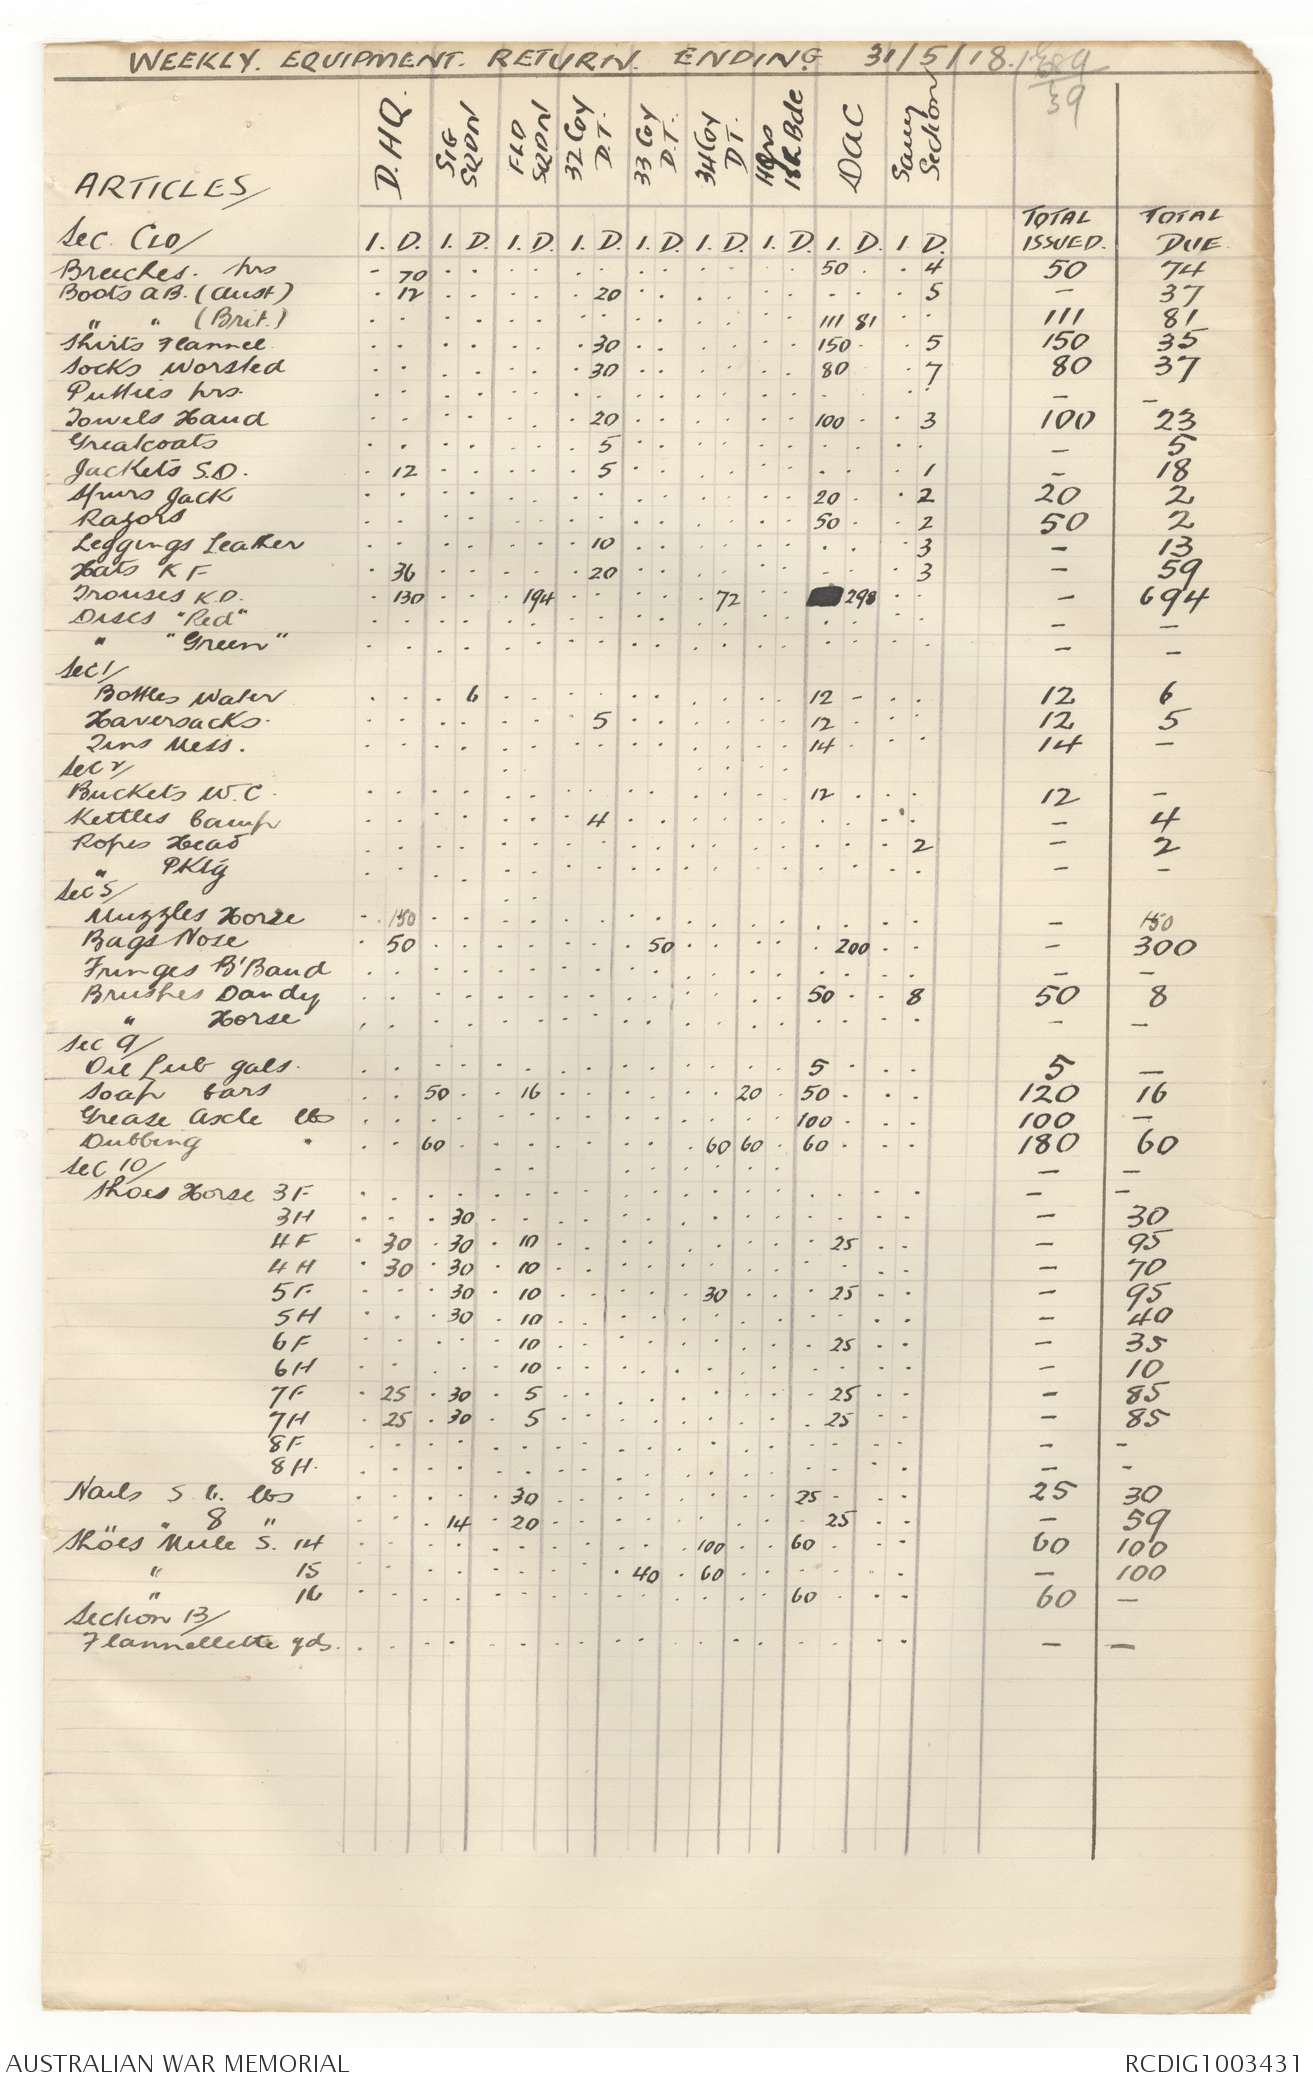 WEEKLY. EQUIPMENT. RETURN. ENDING 31/5/18.
39
ARTICLES/ D.HQ. SIG SQDN FLD SQDN 32 Coy D.T. 33 Coy D.T. 34 Coy DT. HQrs 18th Bde DAC Sany Section
TOTAL ISSUED. TOTAL DUE
Sec. Clo/ I. D. I. D. I. D. I. D. I. D. I. D. I. D. I. D. I. D.
Breeches. prs - 70 50 4 50 74
Boots AB. (Aust) 12 20 5 - 37
" " (Brit.) 111 81 111 81
Shirts Flannel 30 150 5 150 35
Socks Worsted 30 80 7 80 37
Putties prs. - -
Towels Hand 20 100 3 100 23
Greatcoats 5 - 5
Jackets S.D. 12 5 1 - 18
Spurs Jack 20 2 20 2
Razors 50 2 50 2
Leggings Leather 10 3 - 13
Hats K F 36 20 3 - 59
Trouses K.D. 130 194 72 298 - 694
Discs "Red" - -
" "Green" - -
Sec 1/
Bottles Water 6 12 - 12 6
Haversacks. 5 12 12 5
Tins Mess. 14 14 -
Sec 2/
Buckets W.C. 12 12 -
Kettles Camp 4 - 4
Ropes Head 2 - 2
" PKtg - -
Sec 5/
Muzzles Horse 150 - 150
Bags Nose 50 50 200 - 300
Fringes B'Band - -
Brushes Dandy 50 8 50 8
" Horse - -
Sec 9/
Oil Lub gals. 5 5 -
Soap bars 50 16 20 50 120 16
Grease Axle lbs 100 100 -
Dubbing " 60 60 60 60 180 60
Sec 10/ - -
Shoes Horse 3F - -
3H 30 - 30
4F 30 30 10 25 - 95
4H 30 30 10 - 70
5F 30 10 30 25 - 95
5H 30 10 - 40
6F 10 25 - 35
6H 10 - 10
7F 25 30 5 25 - 85
7H 25 30 5 25 - 85
8F - -
8H. - -
Nails S 6. lbs 30 25 25 30
" 8 " 14 20 25 - 59
Shoes Mule S. 14 100 60 60 100
" 15 40 60 - 100
" 16 60 60 -
Section 13/
Flannellette yds. - -
AUSTRALIAN WAR MEMORIAL RCDIG1003431